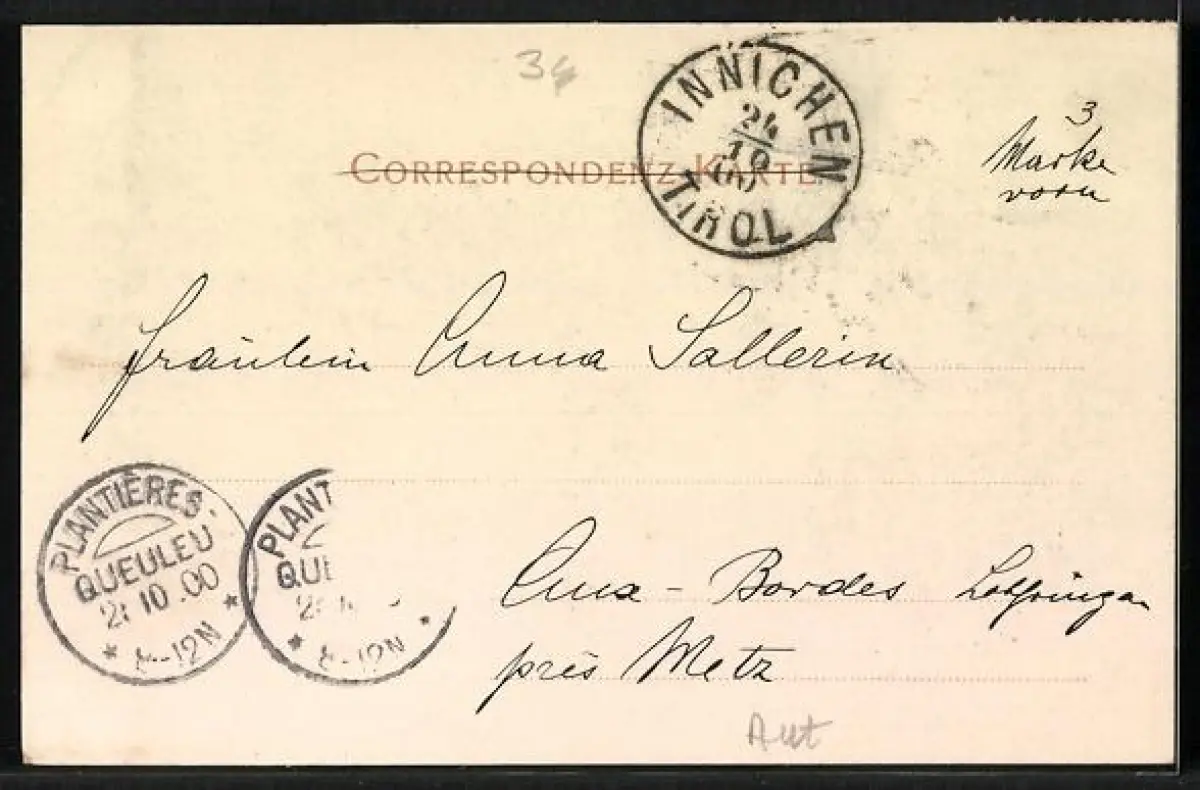 34
CORRESPONDENZ-KARTE
INNICHEN
24
10
00
TIROL
3
Marke
vorn
Fräulein Anna Sallerin
PLANTIÈRES-
QUEULEU
10.00
8-12N
PLANT
QUE
8-12N
Bordes Lothringen
près Metz
Aut